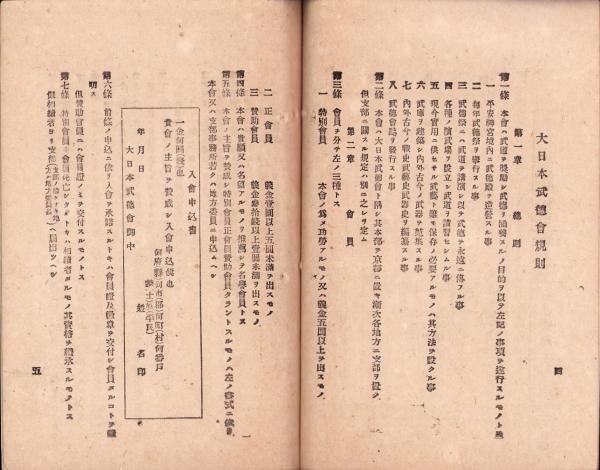 大日本武德會規則
第一章　總則
第一條　本會ハ武道ヲ奬勵シ武德ヲ涵養スルノ目的ヲ以テ左記ノ事項ヲ遂行スルモノトス
一　平安神宮境內ニ武德殿ヲ造營スル事
二　每年武德祭ヲ擧行スル事
三　武德殿ニ武道ヲ講演シ以テ武德ヲ永遠ニ傳フル事
四　各種ノ演武場ヲ設立シ武道ヲ講習セシムル事
五　現今實用ニ供セサル武藝ト雖モ保存ノ必要アルモノハ其方法ヲ設クル事
六　武庫ヲ建築シ內外古今ノ武器ヲ蒐集スル事
七　內外古今ノ戰史武藝史武器史ヲ編纂スル事
八　武德會誌ヲ發行スル事
第二條　本會ハ大日本武德會ト稱シ其本部ヲ京都ニ置キ漸次各地方ニ支部ヲ設ク
但支部ニ關スル規定ハ別ニ之レヲ定ム
第二章　會員
第三條　會員ヲ分テ左ノ三種トス
一　特別會員　本會ノ爲メ功勞アルモノ又ハ義金五圓以上ヲ出スモノ
四
二　正會員　義金壹圓以上五圓未滿ヲ出スモノ
三　贊助會員　義金參拾錢以上壹圓未滿ヲ出スモノ
第四條　本會ハ貴顯又ハ名望アルモノヲ推薦シテ名譽會員トス
第五條　本會ノ主旨ヲ贊成シ特別會員正會員贊助會員タラントスルモノハ左ノ書式ニ依
本會又ハ支部事務所若クハ地方委員ニ申込ムヘシ
入會申込書
一金何圓何錢也
貴會ノ主旨ヲ贊成シ入會申込候也
何府縣何市郡何町(村)何番戶
族(士)族(平民)
年月日　姓　名印
大日本武德會御中
第六條　前條ノ申込ニ依リ入會ヲ承諾スルトキハ會員證及徽章ヲ交付シ會員タルコトヲ證
明ス
但贊助會員ニハ會員證ノミヲ交付スルモノトス
第七條　特別會員正會員死亡シタルトキハ相續者タルモノ其資格ヲ繼承スルモノトス
但相續者ヨリ支部ヘ屆出ツヘシ
五